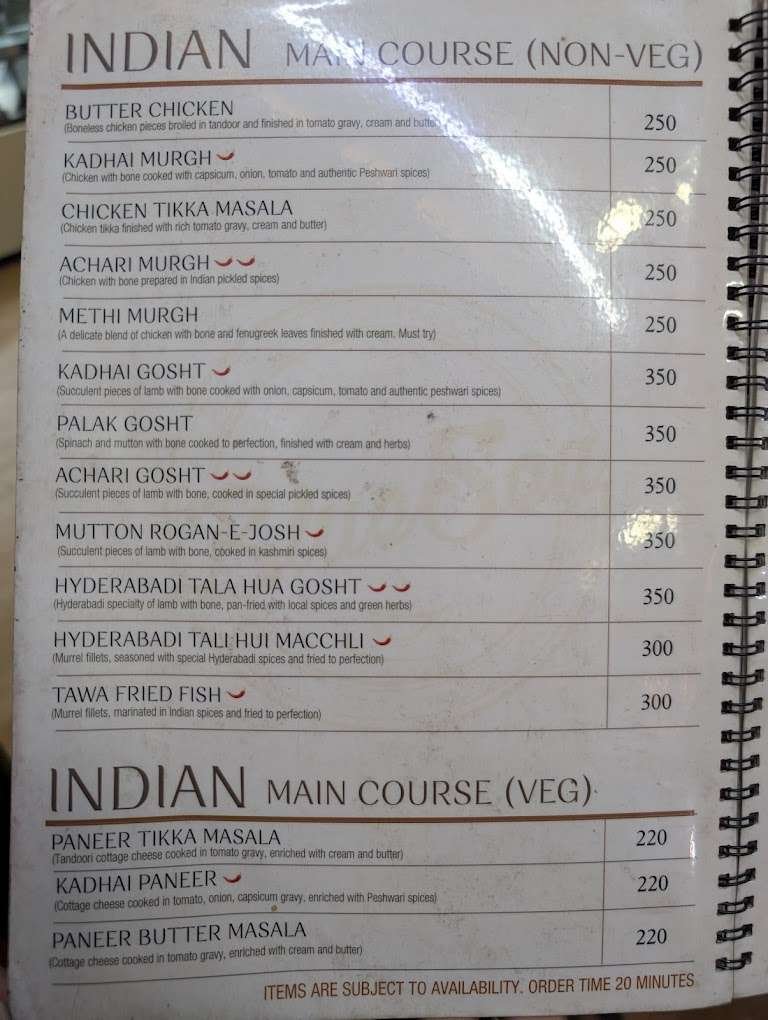 INDIAN MAIN COURSE (NON-VEG)
BUTTER CHICKEN
(Boneless chicken pieces broiled in tandoor and finished in tomato gravy, cream and butter)
250
KADHAI MURGH
(Chicken with bone cooked with capsicum, onion, tomato and authentic Peshwari spices)
250
CHICKEN TIKKA MASALA
(Chicken tikka finished with rich tomato gravy, cream and butter)
250
ACHARI MURGH
(Chicken with bone prepared in Indian pickled spices)
250
METHI MURGH
(A delicate blend of chicken with bone and fenugreek leaves finished with cream. Must try)
250
KADHAI GOSHT
(Succulent pieces of lamb with bone cooked with onion, capsicum, tomato and authentic peshwari spices)
350
PALAK GOSHT
(Spinach and mutton with bone cooked to perfection, finished with cream and herbs)
350
ACHARI GOSHT
(Succulent pieces of lamb with bone, cooked in special pickled spices)
350
MUTTON ROGAN-E-JOSH
(Succulent pieces of lamb with bone, cooked in kashmiri spices)
350
HYDERABADI TALA HUA GOSHT
(Hyderabadi specialty of lamb with bone, pan-fried with local spices and green herbs)
350
HYDERABADI TALI HUI MACCHLI
(Murrel fillets, seasoned with special Hyderabadi spices and fried to perfection)
300
TAWA FRIED FISH
(Murrel fillets, marinated in Indian spices and fried to perfection)
300
INDIAN MAIN COURSE (VEG)
PANEER TIKKA MASALA
(Tandoori cottage cheese cooked in tomato gravy, enriched with cream and butter)
220
KADHAI PANEER
(Cottage cheese cooked in tomato, onion, capsicum gravy, enriched with Peshwari spices)
220
PANEER BUTTER MASALA
(Cottage cheese cooked in tomato gravy, enriched with cream and butter)
220
ITEMS ARE SUBJECT TO AVAILABILITY. ORDER TIME 20 MINUTES